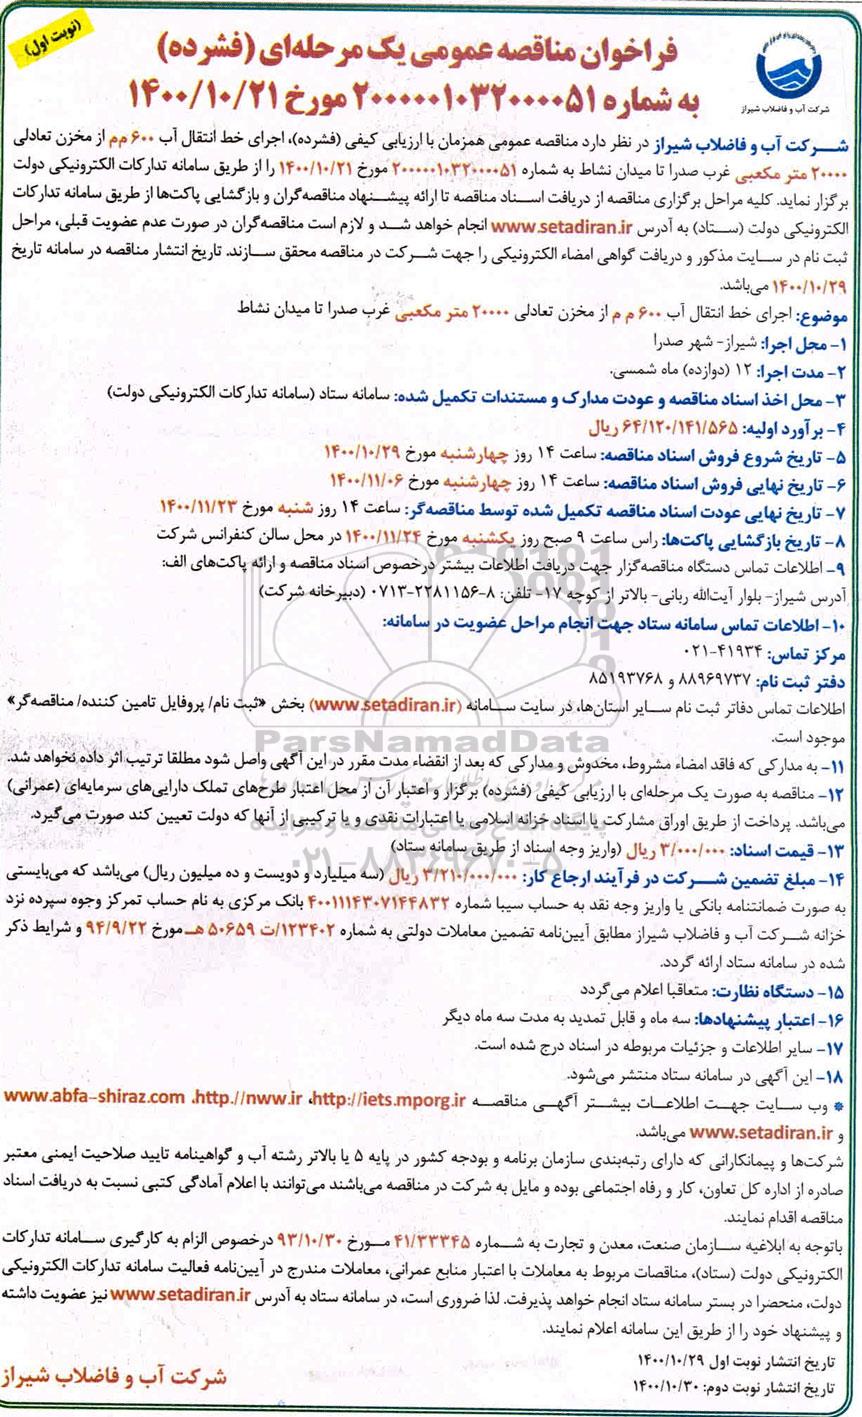 (نوبت اول)
شرکت آب و فاضلاب شیراز
فراخوان مناقصه عمومی یک مرحله‌ای (فشرده)
به شماره ۲۰۰۰۰۰۱۰۳۲۰۰۰۰۵۱ مورخ ۱۴۰۰/۱۰/۲۱
شرکت آب و فاضلاب شیراز در نظر دارد مناقصه عمومی همزمان با ارزیابی کیفی (فشرده)، اجرای خط انتقال آب ۶۰۰ م‌م از مخزن تعادلی
۲۰۰۰۰ متر مکعبی غرب صدرا تا میدان نشاط به شماره ۲۰۰۰۰۰۱۰۳۲۰۰۰۰۵۱ مورخ ۱۴۰۰/۱۰/۲۱ را از طریق سامانه تدارکات الکترونیکی دولت
برگزار نماید. کلیه مراحل برگزاری مناقصه از دریافت اسناد مناقصه تا ارائه پیشنهاد مناقصه‌گران و بازگشایی پاکت‌ها از طریق سامانه تدارکات
الکترونیکی دولت (ستاد) به آدرس www.setadiran.ir انجام خواهد شد و لازم است مناقصه‌گران در صورت عدم عضویت قبلی، مراحل
ثبت نام در سایت مذکور و دریافت گواهی امضاء الکترونیکی را جهت شرکت در مناقصه محقق سازند. تاریخ انتشار مناقصه در سامانه تاریخ
۱۴۰۰/۱۰/۲۹ می‌باشد.
موضوع: اجرای خط انتقال آب ۶۰۰ م م از مخزن تعادلی ۲۰۰۰۰ متر مکعبی غرب صدرا تا میدان نشاط
۱- مجل اجرا: شیراز- شهر صدرا
۲- مدت اجرا: ۱۲ (دوازده) ماه شمسی.
۳- محل اخذ اسناد مناقصه و عودت مدارک و مستندات تکمیل شده: سامانه ستاد (سامانه تدارکات الکترونیکی دولت)
۴- برآورد اولیه: ۶۴/۱۲۰/۱۴۱/۵۶۵ ریال
۵- تاریخ شروع فروش اسناد مناقصه: ساعت ۱۴ روز چهارشنبه مورخ ۱۴۰۰/۱۰/۲۹
۶- تاریخ نهایی فروش اسناد مناقصه: ساعت ۱۴ روز چهارشنبه مورخ ۱۴۰۰/۱۱/۰۶
۷- تاریخ نهایی عودت اسناد مناقصه تکمیل شده توسط مناقصه‌گر: ساعت ۱۴ روز شنبه مورخ ۱۴۰۰/۱۱/۲۳
۸- تاریخ بازگشایی پاکت‌ها: راس ساعت ۹ صبح روز یکشنبه مورخ ۱۴۰۰/۱۱/۲۴ در محل سالن کنفرانس شرکت
۹- اطلاعات تماس دستگاه مناقصه‌گزار جهت دریافت اطلاعات بیشتر درخصوص اسناد مناقصه و ارائه پاکت‌های الف:
آدرس شیراز- بلوار آیت‌الله ربانی- بالاتر از کوچه ۱۷- تلفن: ۸-۲۲۸۱۱۵۶-۰۷۱۳ (دبیرخانه شرکت)
۱۰- اطلاعات تماس سامانه ستاد جهت انجام مراحل عضویت در سامانه:
مرکز تماس: ۴۱۹۳۴-۰۲۱
دفتر ثبت نام: ۸۸۹۶۹۷۳۷ و ۸۵۱۹۳۷۶۸
اطلاعات تماس دفاتر ثبت نام سایر استان‌ها، در سایت سامانه (www.setadiran.ir) بخش «ثبت نام/ پروفایل تامین کننده/ مناقصه‌گر»
موجود است.
ParsNamadData
۱۱- به مدارکی که فاقد امضاء مشروط، مخدوش و مدارکی که بعد از انقضاء مدت مقرر در این آگهی واصل شود مطلقا ترتیب اثر داده نخواهد شد.
۱۲- مناقصه به صورت یک مرحله‌ای با ارزیابی کیفی (فشرده) برگزار و اعتبار آن از محل اعتبار طرح‌های تملک دارایی‌های سرمایه‌ای (عمرانی)
می‌باشد. پرداخت از طریق اوراق مشارکت یا اسناد خزانه اسلامی یا اعتبارات نقدی و یا ترکیبی از آنها که دولت تعیین کند صورت می‌گیرد.
پایگاه اطلاع رسانی مناقصه و مزایده
۱۳- قیمت اسناد: ۳/۰۰۰/۰۰۰ ریال (واریز وجه اسناد از طریق سامانه ستاد)
۰۲۱-۸۸۳۴۹۶۷۰-۵
۱۴- مبلغ تضمین شرکت در فرآیند ارجاع کار: ۳/۲۱۰/۰۰۰/۰۰۰ ریال (سه میلیارد و دویست و ده میلیون ریال) می‌باشد که می‌بایستی
به صورت ضمانتنامه بانکی یا واریز وجه نقد به حساب سیبا شماره ۴۰۰۱۱۱۴۳۰۷۱۴۴۸۳۲ بانک مرکزی به نام حساب تمرکز وجوه سپرده نزد
خزانه شرکت آب و فاضلاب شیراز مطابق آیین‌نامه تضمین معاملات دولتی به شماره ۱۲۳۴۰۲/ت ۵۰۶۵۹ هـ مورخ ۹۴/۹/۲۲ و شرایط ذکر
شده در سامانه ستاد ارائه گردد.
۱۵- دستگاه نظارت: متعاقبا اعلام می‌گردد
۱۶- اعتبار پیشنهادها: سه ماه و قابل تمدید به مدت سه ماه دیگر
۱۷- سایر اطلاعات و جزئیات مربوطه در اسناد درج شده است.
۱۸- این آگهی در سامانه ستاد منتشر می‌شود.
* وب سایت جهت اطلاعات بیشتر آگهی مناقصه http://iets.mporg.ir، http.//nww.ir، www.abfa-shiraz.com
و www.setadiran.ir می‌باشد.
شرکت‌ها و پیمانکارانی که دارای رتبه‌بندی سازمان برنامه و بودجه کشور در پایه ۵ یا بالاتر رشته آب و گواهینامه تایید صلاحیت ایمنی معتبر
صادره از اداره کل تعاون، کار و رفاه اجتماعی بوده و مایل به شرکت در مناقصه می‌باشند می‌توانند با اعلام آمادگی کتبی نسبت به دریافت اسناد
مناقصه اقدام نمایند.
باتوجه به ابلاغیه سازمان صنعت، معدن و تجارت به شماره ۴۱/۳۳۳۴۵ مورخ ۹۳/۱۰/۳۰ درخصوص الزام به کارگیری سامانه تدارکات
الکترونیکی دولت (ستاد)، مناقصات مربوط به معاملات با اعتبار منابع عمرانی، معاملات مندرج در آیین‌نامه فعالیت سامانه تدارکات الکترونیکی
دولت، منحصرا در بستر سامانه ستاد انجام خواهد پذیرفت. لذا ضروری است، در سامانه ستاد به آدرس www.setadiran.ir نیز عضویت داشته
و پیشنهاد خود را از طریق این سامانه اعلام نمایند.
تاریخ انتشار نوبت اول ۱۴۰۰/۱۰/۲۹
تاریخ انتشار نوبت دوم: ۱۴۰۰/۱۰/۳۰
شرکت آب و فاضلاب شیراز